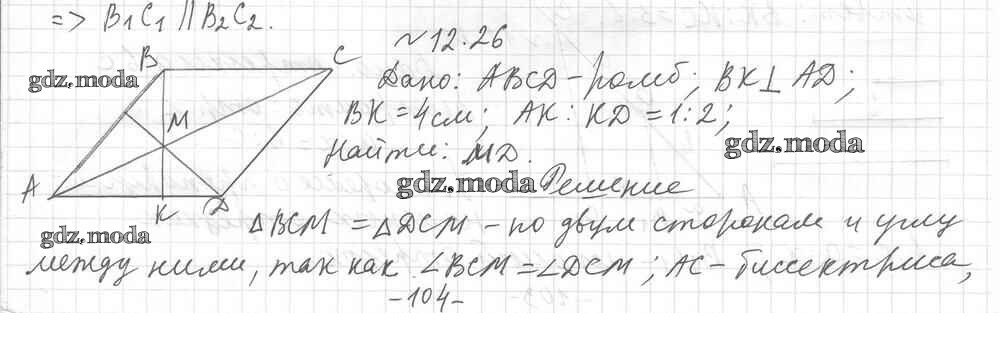 => B₁C₁ || B₂C₂.
~12.26
B C
gdz.moda
Дано: ABCD - ромб; BK⊥AD;
BK = 4см; AK : KD = 1:2;
M
gdz.moda
Найти: MD.
A
gdz.moda
Решение
K D
gdz.moda
△BCM = △DCM - по двум сторонам и углу
между ними, так как ∠BCM = ∠DCM; AC - биссектриса,
-104-